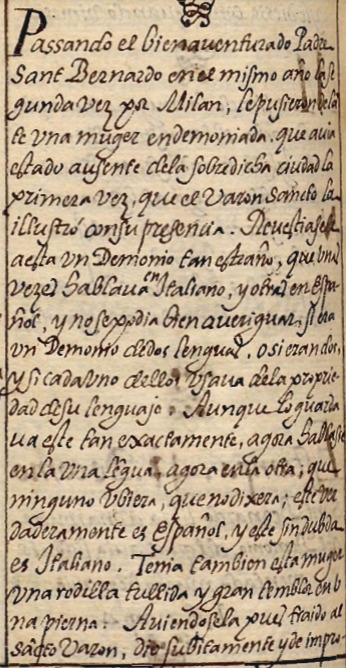 Passando el bienaventurado Padre
Sant Bernardo en el mismo año la se
gunda vez por Milan, le pusieron dela
te una muger endemoniada, que auia
estado ausente dela sobredicha ciudad la
primera vez, que el Varon Sancto la
illustró con su presencia. Revestiasele
a esta un Demonio tan estraño, que unas
vezes hablaua en Italiano, y otras en Espa-
ñol, y no se podia bien averiguar, si era
un Demonio de dos lenguas, o si eran dos,
y si cada uno dellos usaua dela proprie-
dad de su lenguaje. Aunque lo guarda
ua este tan exactamente, agora hablasse
en la una lẽgua, agora en la otra; que
ninguno ubiera, que no dixera; este ver
daderamente es Español, y este sin dubda
es Italiano. Tenia tambien esta muger
una rodilla tullida y gran temblor en u
na pierna. Auiendosela pues traido al
sãcto Varon, dio subitamente y de impro-